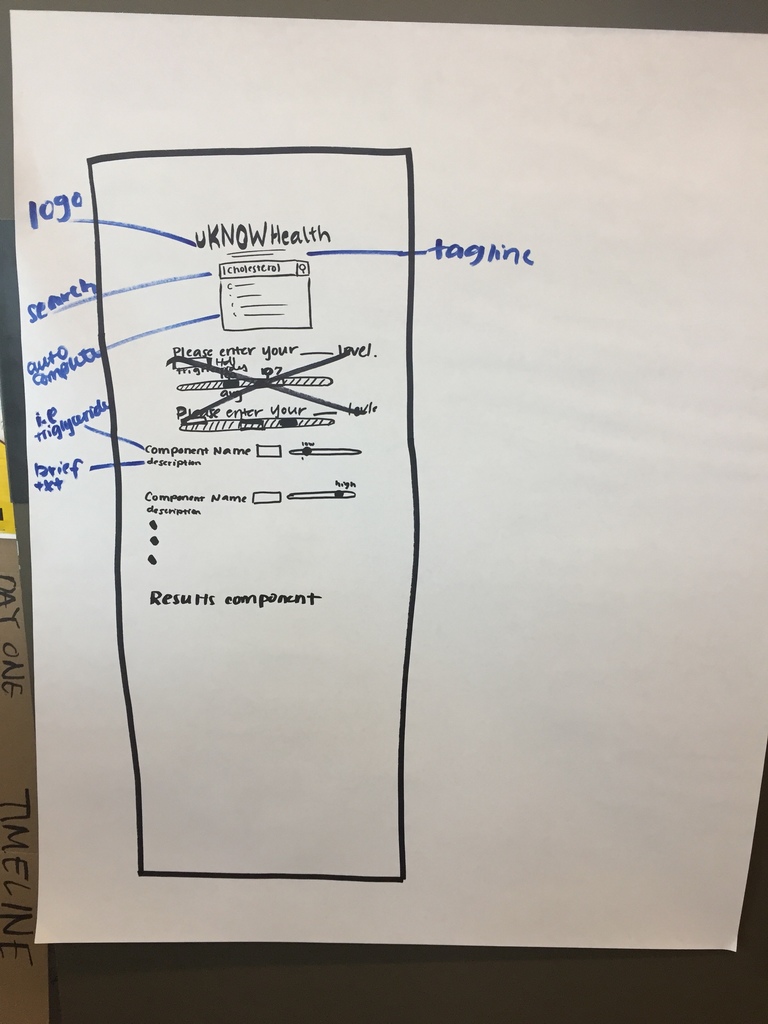 logo
uKNOWHealth
tagline
search
cholesterol
c
auto
complete
Please enter your ___ level.
Please enter your ___
i.e
triglyceride
Component Name
low
description
brief
txt
high
Component Name
description
Results component
DAY ONE
TIMELINE